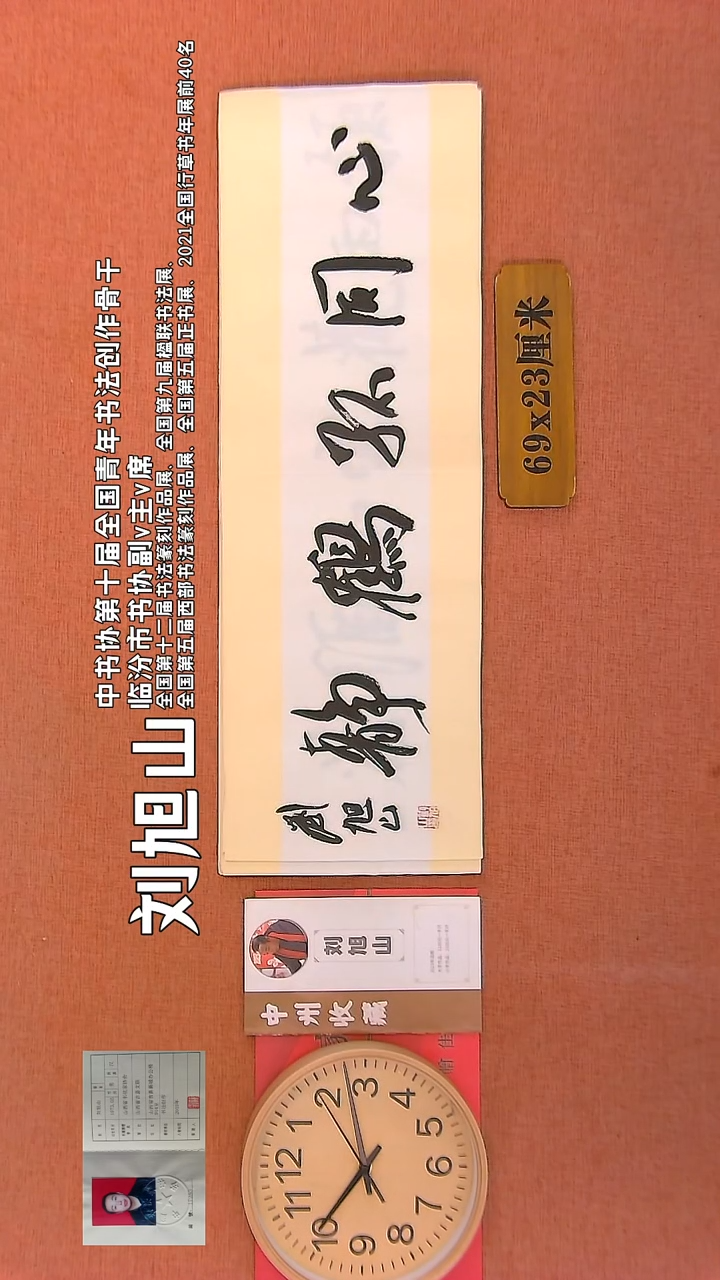 中书协第十届全国青年书法创作骨干
临汾市书协副v主v席
全国第十二届书法篆刻作品展、全国第九届楹联书法展、
全国第五届西部书法篆刻作品展、全国第五届正书展、2021全国行草书年展前40名
刘旭山
心同孤鹤静
刘旭山
69x23厘米
刘旭山
中州收藏
12
1
2
3
4
5
6
7
8
9
10
11